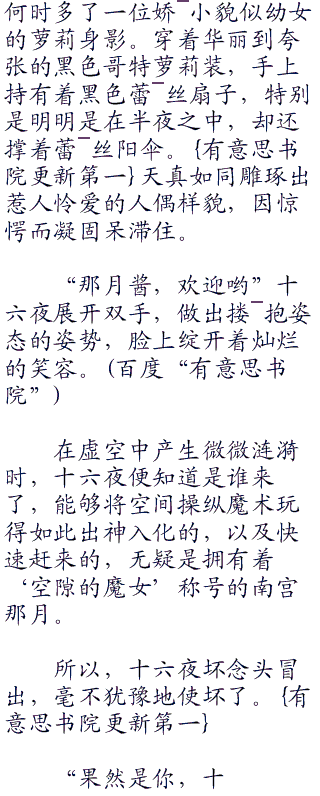 何时多了一位娇ˉ小貌似幼女
的萝莉身影。穿着华丽到夸
张的黑色哥特萝莉装，手上
持有着黑色蕾ˉ丝扇子，特别
是明明是在半夜之中，却还
撑着蕾ˉ丝阳伞。{有意思书
院更新第一}天真如同雕琢出
惹人怜爱的人偶样貌，因惊
愕而凝固呆滞住。
“那月酱，欢迎哟”十
六夜展开双手，做出搂ˉ抱姿
态的姿势，脸上绽开着灿烂
的笑容。(百度“有意思书
院”)
在虚空中产生微微涟漪
时，十六夜便知道是谁来
了，能够将空间操纵魔术玩
得如此出神入化的，以及快
速赶来的，无疑是拥有着
‘空隙的魔女’称号的南宫
那月。
所以，十六夜坏念头冒
出，毫不犹豫地使坏了。{有
意思书院更新第一}
“果然是你，十